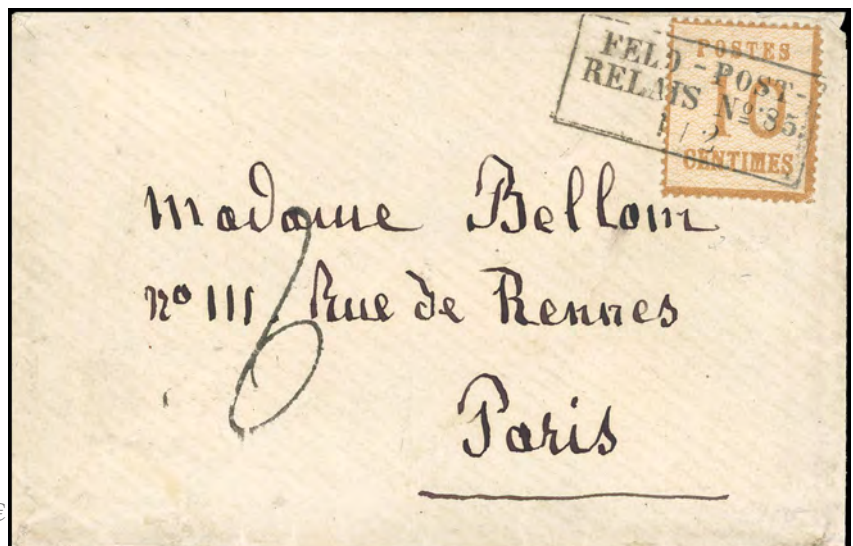 FELD-POST-
RELAIS Nº 85.
1/2
POSTES
10
CENTIMES
Madame Bellom
nº 111. Rue de Rennes
6
Paris
€